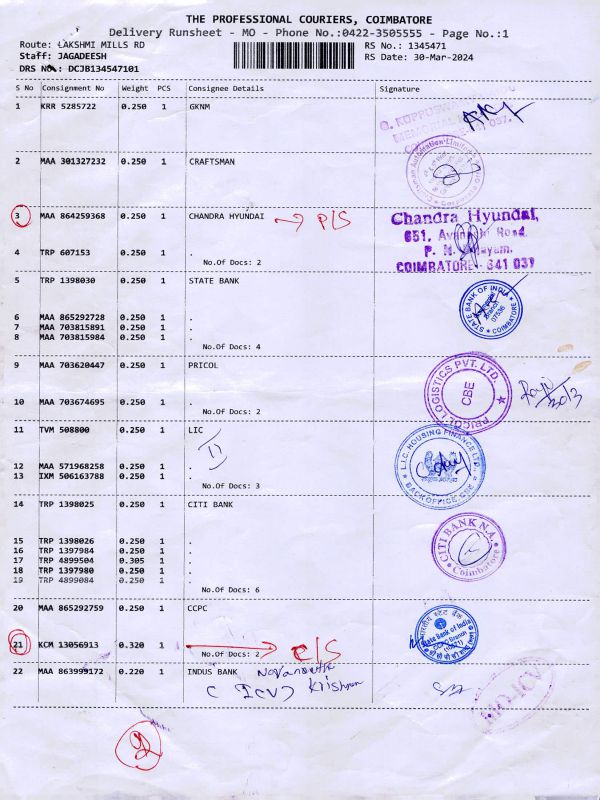 THE PROFESSIONAL COURIERS, COIMBATORE
Delivery Runsheet - MO - Phone No.:0422-3505555 - Page No.:1
Route: LAKSHMI MILLS RD
RS No.: 1345471
Staff: JAGADEESH
RS Date: 30-Mar-2024
DRS No.: DCJB134547101
S No Consignment No Weight PCS Consignee Details Signature
1 KRR 5285722 0.250 1 GKNM
2 MAA 301327232 0.250 1 CRAFTSMAN
3 MAA 864259368 0.250 1 CHANDRA HYUNDAI → P/S
Chandra Hyundai,
651, Avinashi Road,
P. N. Palayam,
COIMBATORE - 641 037
4 TRP 607153 0.250 1 .
No.Of Docs: 2
5 TRP 1398030 0.250 1 STATE BANK
STATE BANK OF INDIA
COIMBATORE
6 MAA 865292728 0.250 1 .
7 MAA 703815891 0.250 1 .
8 MAA 703815984 0.250 1 .
No.Of Docs: 4
9 MAA 703620447 0.250 1 PRICOL
PRICOL LOGISTICS PVT. LTD.
CBE
10 MAA 703674695 0.250 1 .
No.Of Docs: 2
11 TVM 508800 0.250 1 LIC
L.I.C. HOUSING FINANCE LTD.
BACK OFFICE, CBE
12 MAA 571968258 0.250 1 .
13 IXM 506163788 0.250 1 .
No.Of Docs: 3
14 TRP 1398025 0.250 1 CITI BANK
CITI BANK N.A.
Coimbatore
15 TRP 1398026 0.250 1 .
16 TRP 1397984 0.250 1 .
17 TRP 4899504 0.305 1 .
18 TRP 1397980 0.250 1 .
19 TRP 4899084 0.250 1 .
No.Of Docs: 6
20 MAA 865292759 0.250 1 CCPC
भारतीय स्टेट बैंक
State Bank of India
21 KCM 13056913 0.320 1 → C/S
No.Of Docs: 2
22 MAA 863999172 0.220 1 INDUS BANK Navaneetha
(ICV) Krishnan
2